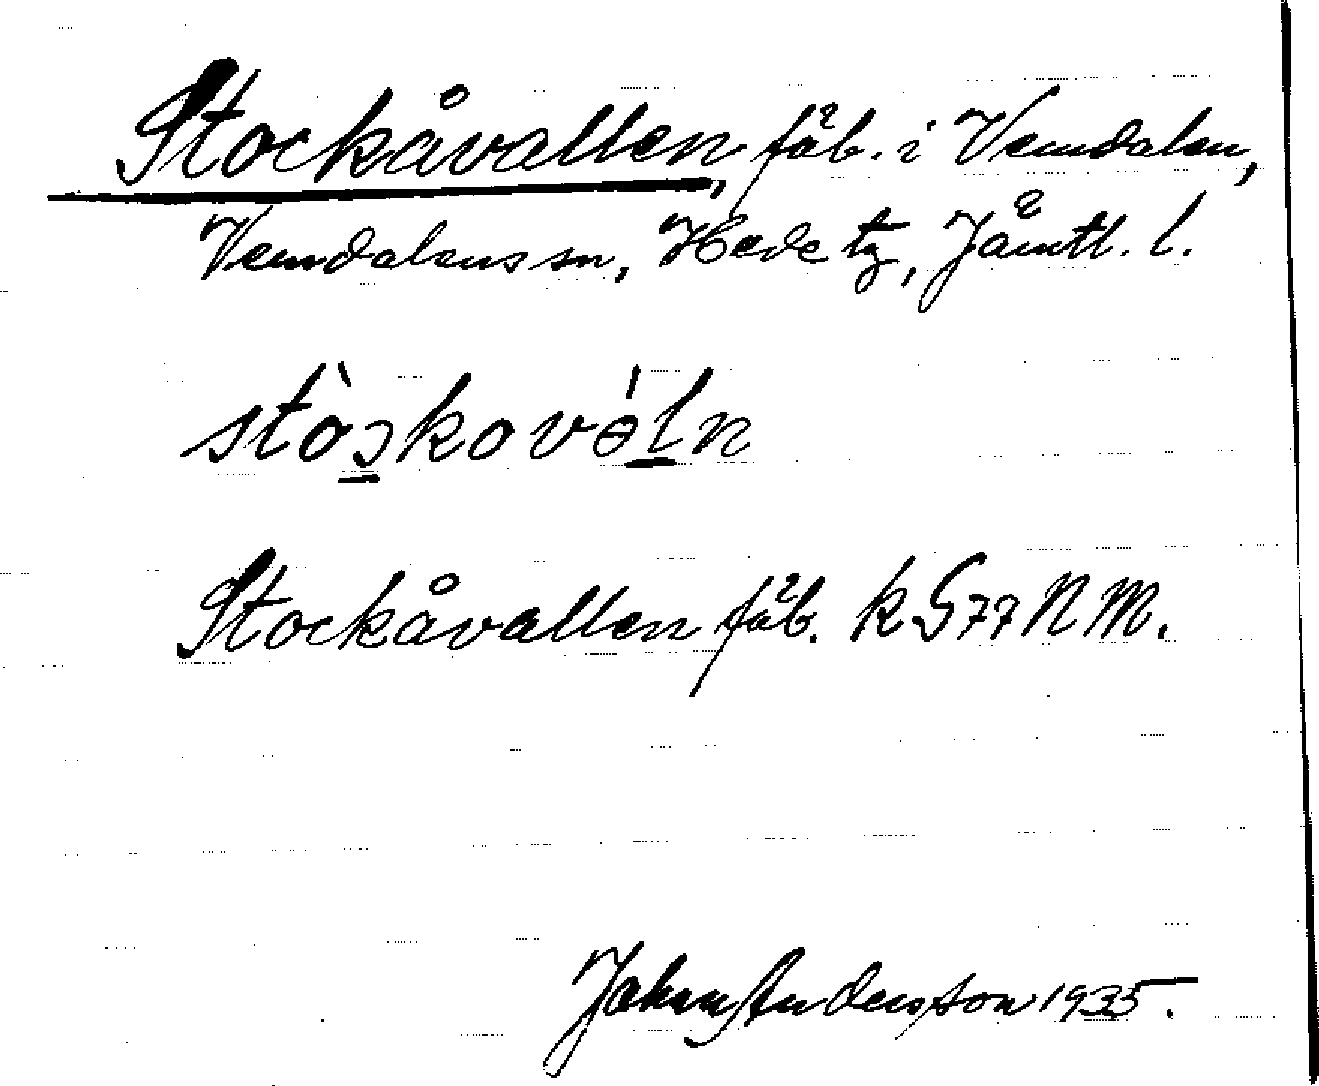 Stockåvallen, fäb. i Vemdalen,
Vemdalens sn, Hede tg, Jämtl. l.
stòskovóln
Stockåvallen fäb. k G 77 NM.
Johan Andersson 1935.